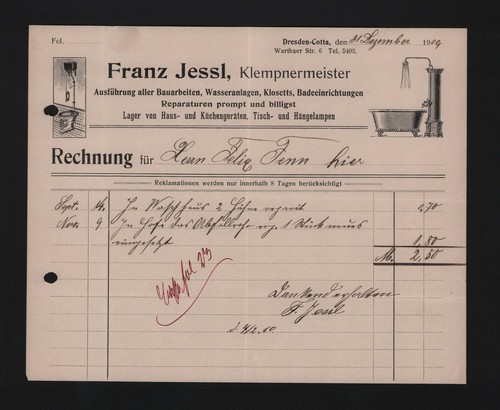 Fol.
Dresden-Cotta, den 31 Dezember 1909
Warthaer Str. 6 Tel. 5402.
Franz Jessl, Klempnermeister
Ausführung aller Bauarbeiten, Wasseranlagen, Klosetts, Badeeinrichtungen
Reparaturen prompt und billigst
Lager von Haus- und Küchengeräten, Tisch- und Hängelampen
Rechnung für Herrn Felix Fenn hier
Reklamationen werden nur innerhalb 8 Tagen berücksichtigt
Sept. 14. In Waschhaus 2 Hähne repariert 0,70
Nov. 9 In Hofe das Abfallrohr rep. 1 Stück neues
eingesetzt 1,80
M. 2,50
Dankend erhalten
F. Jessl